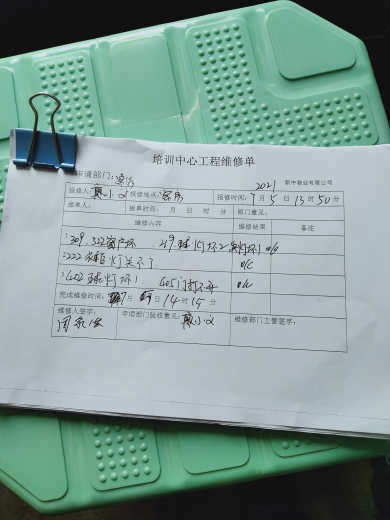 培训中心工程维修单
申请部门：客房 2021 新中物业有限公司
报修人： 小文 报修地点：客房 报修时间：7月5日13时50分
接单人： 接单时间： 月 日 时 分 部门意见：
维修内容 维修结果 备注
1 309.322窗户坏 219球灯坏2 o/c
2 222衣柜灯关不了 o/c
3 602球灯坏1 605门打不开 o/c
完成维修时间： 7月 日14时15分
维修人签字： 申请部门验收意见： 小文 维修部门主管签字：